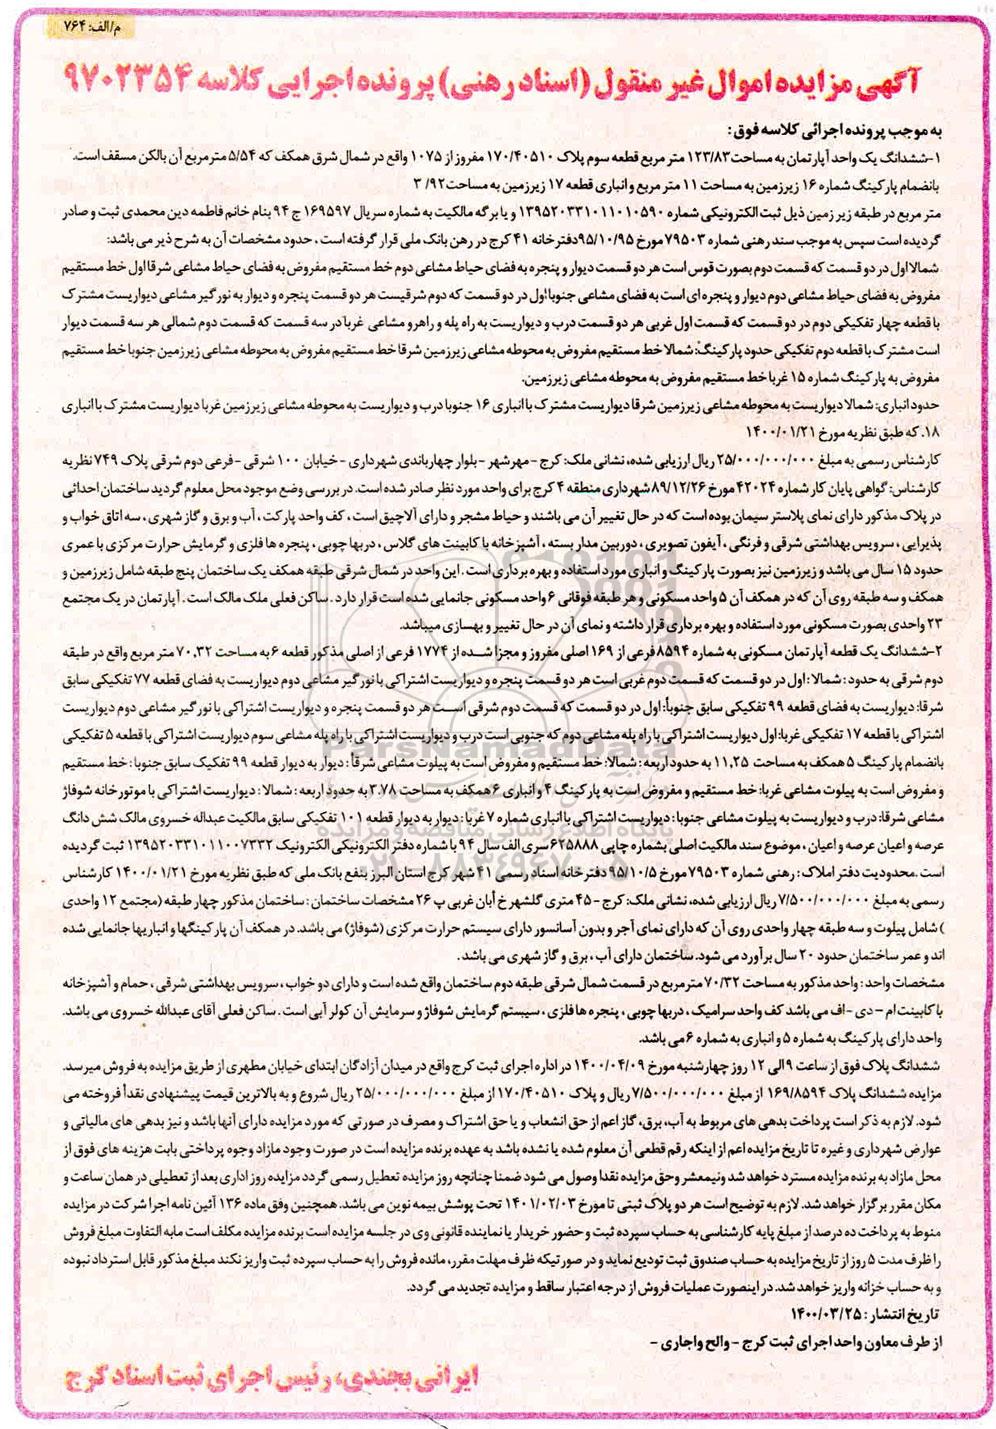 م/الف: ۷۶۴
آگهی مزایده اموال غیر منقول (اسناد رهنی) پرونده اجرایی کلاسه ۹۷۰۲۳۵۴
به موجب پرونده اجرائی کلاسه فوق:
۱-ششدانگ یک واحد آپارتمان به مساحت۱۲۳/۸۳ متر مربع قطعه سوم پلاک ۱۷۰/۴۰۵۱۰ مفروز از ۱۰۷۵ واقع در شمال شرق همکف که ۵/۵۴ مترمربع آن بالکن مسقف است.
بانضمام پارکینگ شماره ۱۶ زیرزمین به مساحت ۱۱ متر مربع و انباری قطعه ۱۷ زیرزمین به مساحت۹۲/ ۳
متر مربع در طبقه زیر زمین ذیل ثبت الکترونیکی شماره ۱۳۹۵۲۰۳۳۱۰۱۱۰۱۰۵۹۰ و با برگه مالکیت به شماره سریال ۱۶۹۵۹۷ ج ۹۴ بنام خانم فاطمه دین محمدی ثبت و صادر
گردیده است سپس به موجب سند رهنی شماره ۷۹۵۰۳مورخ ۹۵/۱۰/۹۵دفترخانه ۴۱ کرج در رهن بانک ملی قرار گرفته است، حدود مشخصات آن به شرح ذیر می باشد:
شمالا اول در دو قسمت که قسمت دوم بصورت قوس است هر دو قسمت دیوار و پنجره به فضای حیاط مشاعی دوم خط مستقیم مفروض به فضای حیاط مشاعی شرقا اول خط مستقیم
مفروض به فضای حیاط مشاعی دوم دیوار و پنجره ای است به فضای مشاعی جنوبا اول در دو قسمت که دوم شرقیست هر دو قسمت پنجره و دیوار به نورگیر مشاعی دیواریست مشترک
با قطعه چهار تفکیکی دوم در دو قسمت که قسمت اول غربی هر دو قسمت درب و دیواریست به راه پله و راهرو مشاعی غربا در سه قسمت که قسمت دوم شمالی هر سه قسمت دیوار
است مشترک با قطعه دوم تفکیکی حدود پارکینگ: شمالا خط مستقیم مفروض به محوطه مشاعی زیرزمین شرقا خط مستقیم مفروض به محوطه مشاعی زیرزمین جنوبا خط مستقیم
مفروض به پارکینگ شماره ۱۵ غربا خط مستقیم مفروض به محوطه مشاعی زیرزمین.
حدود انباری: شمالا دیواریست به محوطه مشاعی زیرزمین شرقا دیواریست مشترک با انباری ۱۶ جنوبا درب و دیواریست به محوطه مشاعی زیرزمین غربا دیواریست مشترک با انباری
۱۸. که طبق نظریه مورخ ۱۴۰۰/۰۱/۲۱
کارشناس رسمی به مبلغ ۲۵/۰۰۰/۰۰۰/۰۰۰ ریال ارزیابی شده، نشانی ملک: کرج - مهرشهر -بلوار چهارباندی شهرداری -خیابان ۱۰۰ شرقی -فرعی دوم شرقی پلاک ۷۴۹ نظریه
کارشناس: گواهی پایان کار شماره ۴۲۰۲۴مورخ ۸۹/۱۲/۲۶شهرداری منطقه ۴ کرج برای واحد مورد نظر صادر شده است. در بررسی وضع موجود محل معلوم گردید ساختمان احداثی
در پلاک مذکور دارای نمای پلاستر سیمان بوده است که در حال تغییر آن می باشند و حیاط مشجر و دارای آلاچیق است، کف واحد پارکت، آب و برق و گاز شهری، سه اتاق خواب و
پذیرایی، سرویس بهداشتی شرقی و فرنگی، آیفون تصویری، دوربین مدار بسته، آشپزخانه با کابینت های گلاس، دربها چوبی، پنجره ها فلزی و گرمایش حرارت مرکزی با عمری
حدود ۱۵ سال می باشد و زیرزمین نیز بصورت پارکینگ و انباری مورد استفاده و بهره برداری است. این واحد در شمال شرقی طبقه همکف یک ساختمان پنج طبقه شامل زیرزمین و
همکف و سه طبقه روی آن که در همکف آن ۵ واحد مسکونی و هر طبقه فوقانی ۶ واحد مسکونی جانمایی شده است قرار دارد. ساکن فعلی ملک مالک است. آپارتمان در یک مجتمع
۲۳ واحدی بصورت مسکونی مورد استفاده و بهره برداری قرار داشته و نمای آن در حال تغییر و بهسازی میباشد.
۲-ششدانگ یک قطعه آپارتمان مسکونی به شماره ۸۵۹۴فرعی از ۱۶۹ اصلی مفروز و مجزا شده از ۱۷۷۴ فرعی از اصلی مذکور قطعه ۶ به مساحت ۷۰,۳۲ متر مربع واقع در طبقه
دوم شرقی به حدود: شمالا: اول در دو قسمت که قسمت دوم غربی است هر دو قسمت پنجره و دیواریست اشتراکی با نورگیر مشاعی دوم دیواریست به فضای قطعه ۷۷ تفکیکی سابق
شرقا: دیواریست به فضای قطعه ۹۹ تفکیکی سابق جنوباً: اول در دو قسمت که قسمت دوم شرقی است هر دو قسمت پنجره و دیواریست اشتراکی با نورگیر مشاعی دوم دیواریست
اشتراکی با قطعه ۱۷ تفکیکی غربا: اول دیواریست اشتراکی با راه پله مشاعی دوم که جنوبی است درب و دیواریست اشتراکی با راه پله مشاعی سوم دیواریست اشتراکی با قطعه ۵ تفکیکی
بانضمام پارکینگ ۵ همکف به مساحت ۱۱,۲۵ به حدود اربعه: شمالا: خط مستقیم و مفروض است به پیلوت مشاعی شرقاً: دیوار به دیوار قطعه ۹۹ تفکیک سابق جنوبا: خط مستقیم
و مفروض است به پیلوت مشاعی غربا: خط مستقیم و مفروض است به پارکینگ ۴ و انباری ۶ همکف به مساحت ۳.۷۸ به حدود اربعه: شمالا: دیواریست اشتراکی با موتورخانه شوفاژ
مشاعی شرقا: درب و دیواریست به پیلوت مشاعی جنوبا: دیواریست اشتراکی با انباری شماره ۷ غربا: دیوار به دیوار قطعه ۱۰۱ تفکیکی سابق مالکیت عبداله خسروی مالک شش دانگ
عرصه و اعیان عرصه و اعیان، موضوع سند مالکیت اصلی بشماره چاپی ۶۲۵۸۸۸سری الف سال ۹۴ با شماره دفتر الکترونیکی الکترونیک ۱۳۹۵۲۰۳۳۱۰۱۱۰۰۷۳۳۲ ثبت گردیده
است .محدودیت دفتر املاک: رهنی شماره ۷۹۵۰۳مورخ ۹۵/۱۰/۵ دفترخانه اسناد رسمی ۴۱ شهر کرج استان البرز بنفع بانک ملی که طبق نظریه مورخ ۱۴۰۰/۰۱/۲۱ کارشناس
رسمی به مبلغ ۷/۵۰۰/۰۰۰/۰۰۰ ریال ارزیابی شده، نشانی ملک: کرج - ۴۵ متری گلشهر خ آبان غربی پ ۲۶ مشخصات ساختمان: ساختمان مذکور چهار طبقه (مجتمع ۱۲ واحدی
) شامل پیلوت و سه طبقه چهار واحدی روی آن که دارای نمای آجر و بدون آسانسور دارای سیستم حرارت مرکزی (شوفاژ) می باشد. در همکف آن پارکینگها و انباریها جانمایی شده
اند و عمر ساختمان حدود ۲۰ سال برآورد می شود. ساختمان دارای آب، برق و گاز شهری می باشد.
مشخصات واحد: واحد مذکور به مساحت ۷۰/۳۲ مترمربع در قسمت شمال شرقی طبقه دوم ساختمان واقع شده است و دارای دو خواب، سرویس بهداشتی شرقی، حمام و آشپزخانه
با کابینت ام -دی -اف می باشد کف واحد سرامیک، دربها چوبی، پنجره ها فلزی، سیستم گرمایش شوفاژ و سرمایش آن کولر آبی است. ساکن فعلی آقای عبدالله خسروی می باشد.
واحد دارای پارکینگ به شماره ۵ و انباری به شماره ۶ می باشد.
ششدانگ پلاک فوق از ساعت ۹ الی ۱۲ روز چهارشنبه مورخ ۱۴۰۰/۰۴/۰۹ در اداره اجرای ثبت کرج واقع در میدان آزادگان ابتدای خیابان مطهری از طریق مزایده به فروش میرسد.
مزایده ششدانگ پلاک ۱۶۹/۸۵۹۴ از مبلغ ۷/۵۰۰/۰۰۰/۰۰۰ ریال و پلاک ۱۷۰/۴۰۵۱۰ از مبلغ ۲۵/۰۰۰/۰۰۰/۰۰۰ ریال شروع و به بالاترین قیمت پیشنهادی نقداً فروخته می
شود. لازم به ذکر است پرداخت بدهی های مربوط به آب، برق، گاز اعم از حق انشعاب و یا حق اشتراک و مصرف در صورتی که مورد مزایده دارای آنها باشد و نیز بدهی های مالیاتی و
عوارض شهرداری و غیره تا تاریخ مزایده اعم از اینکه رقم قطعی آن معلوم شده یا نشده باشد به عهده برنده مزایده است در صورت وجود مازاد وجوه پرداختی بابت هزینه های فوق از
محل مازاد به برنده مزایده مسترد خواهد شد ونیمعشر وحق مزایده نقدا وصول می شود ضمنا چنانچه روز مزایده تعطیل رسمی گردد مزایده روز اداری بعد از تعطیلی در همان ساعت و
مکان مقرر برگزار خواهد شد. لازم به توضیح است هر دو پلاک ثبتی تا مورخ ۱۴۰۱/۰۲/۰۳ تحت پوشش بیمه نوین می باشد. همچنین وفق ماده ۱۳۶ آئین نامه اجرا شرکت در مزایده
منوط به پرداخت ده درصد از مبلغ پایه کارشناسی به حساب سپرده ثبت و حضور خریدار یا نماینده قانونی وی در جلسه مزایده است برنده مزایده مکلف است مابه التفاوت مبلغ فروش
را ظرف مدت ۵ روز از تاریخ مزایده به حساب صندوق ثبت تودیع نماید و در صورتیکه ظرف مهلت مقرر، مانده فروش را به حساب سپرده ثبت واریز نکند مبلغ مذکور قابل استرداد نبوده
و به حساب خزانه واریز خواهد شد. در اینصورت عملیات فروش از درجه اعتبار ساقط و مزایده تجدید می گردد.
تاریخ انتشار: ۱۴۰۰/۰۳/۲۵
از طرف معاون واحد اجرای ثبت کرج - والح واجاری -
ایرانی بجندی، رئیس اجرای ثبت اسناد کرج
ParsNamadData
پایگاه اطلاع رسانی مناقصه و مزایده